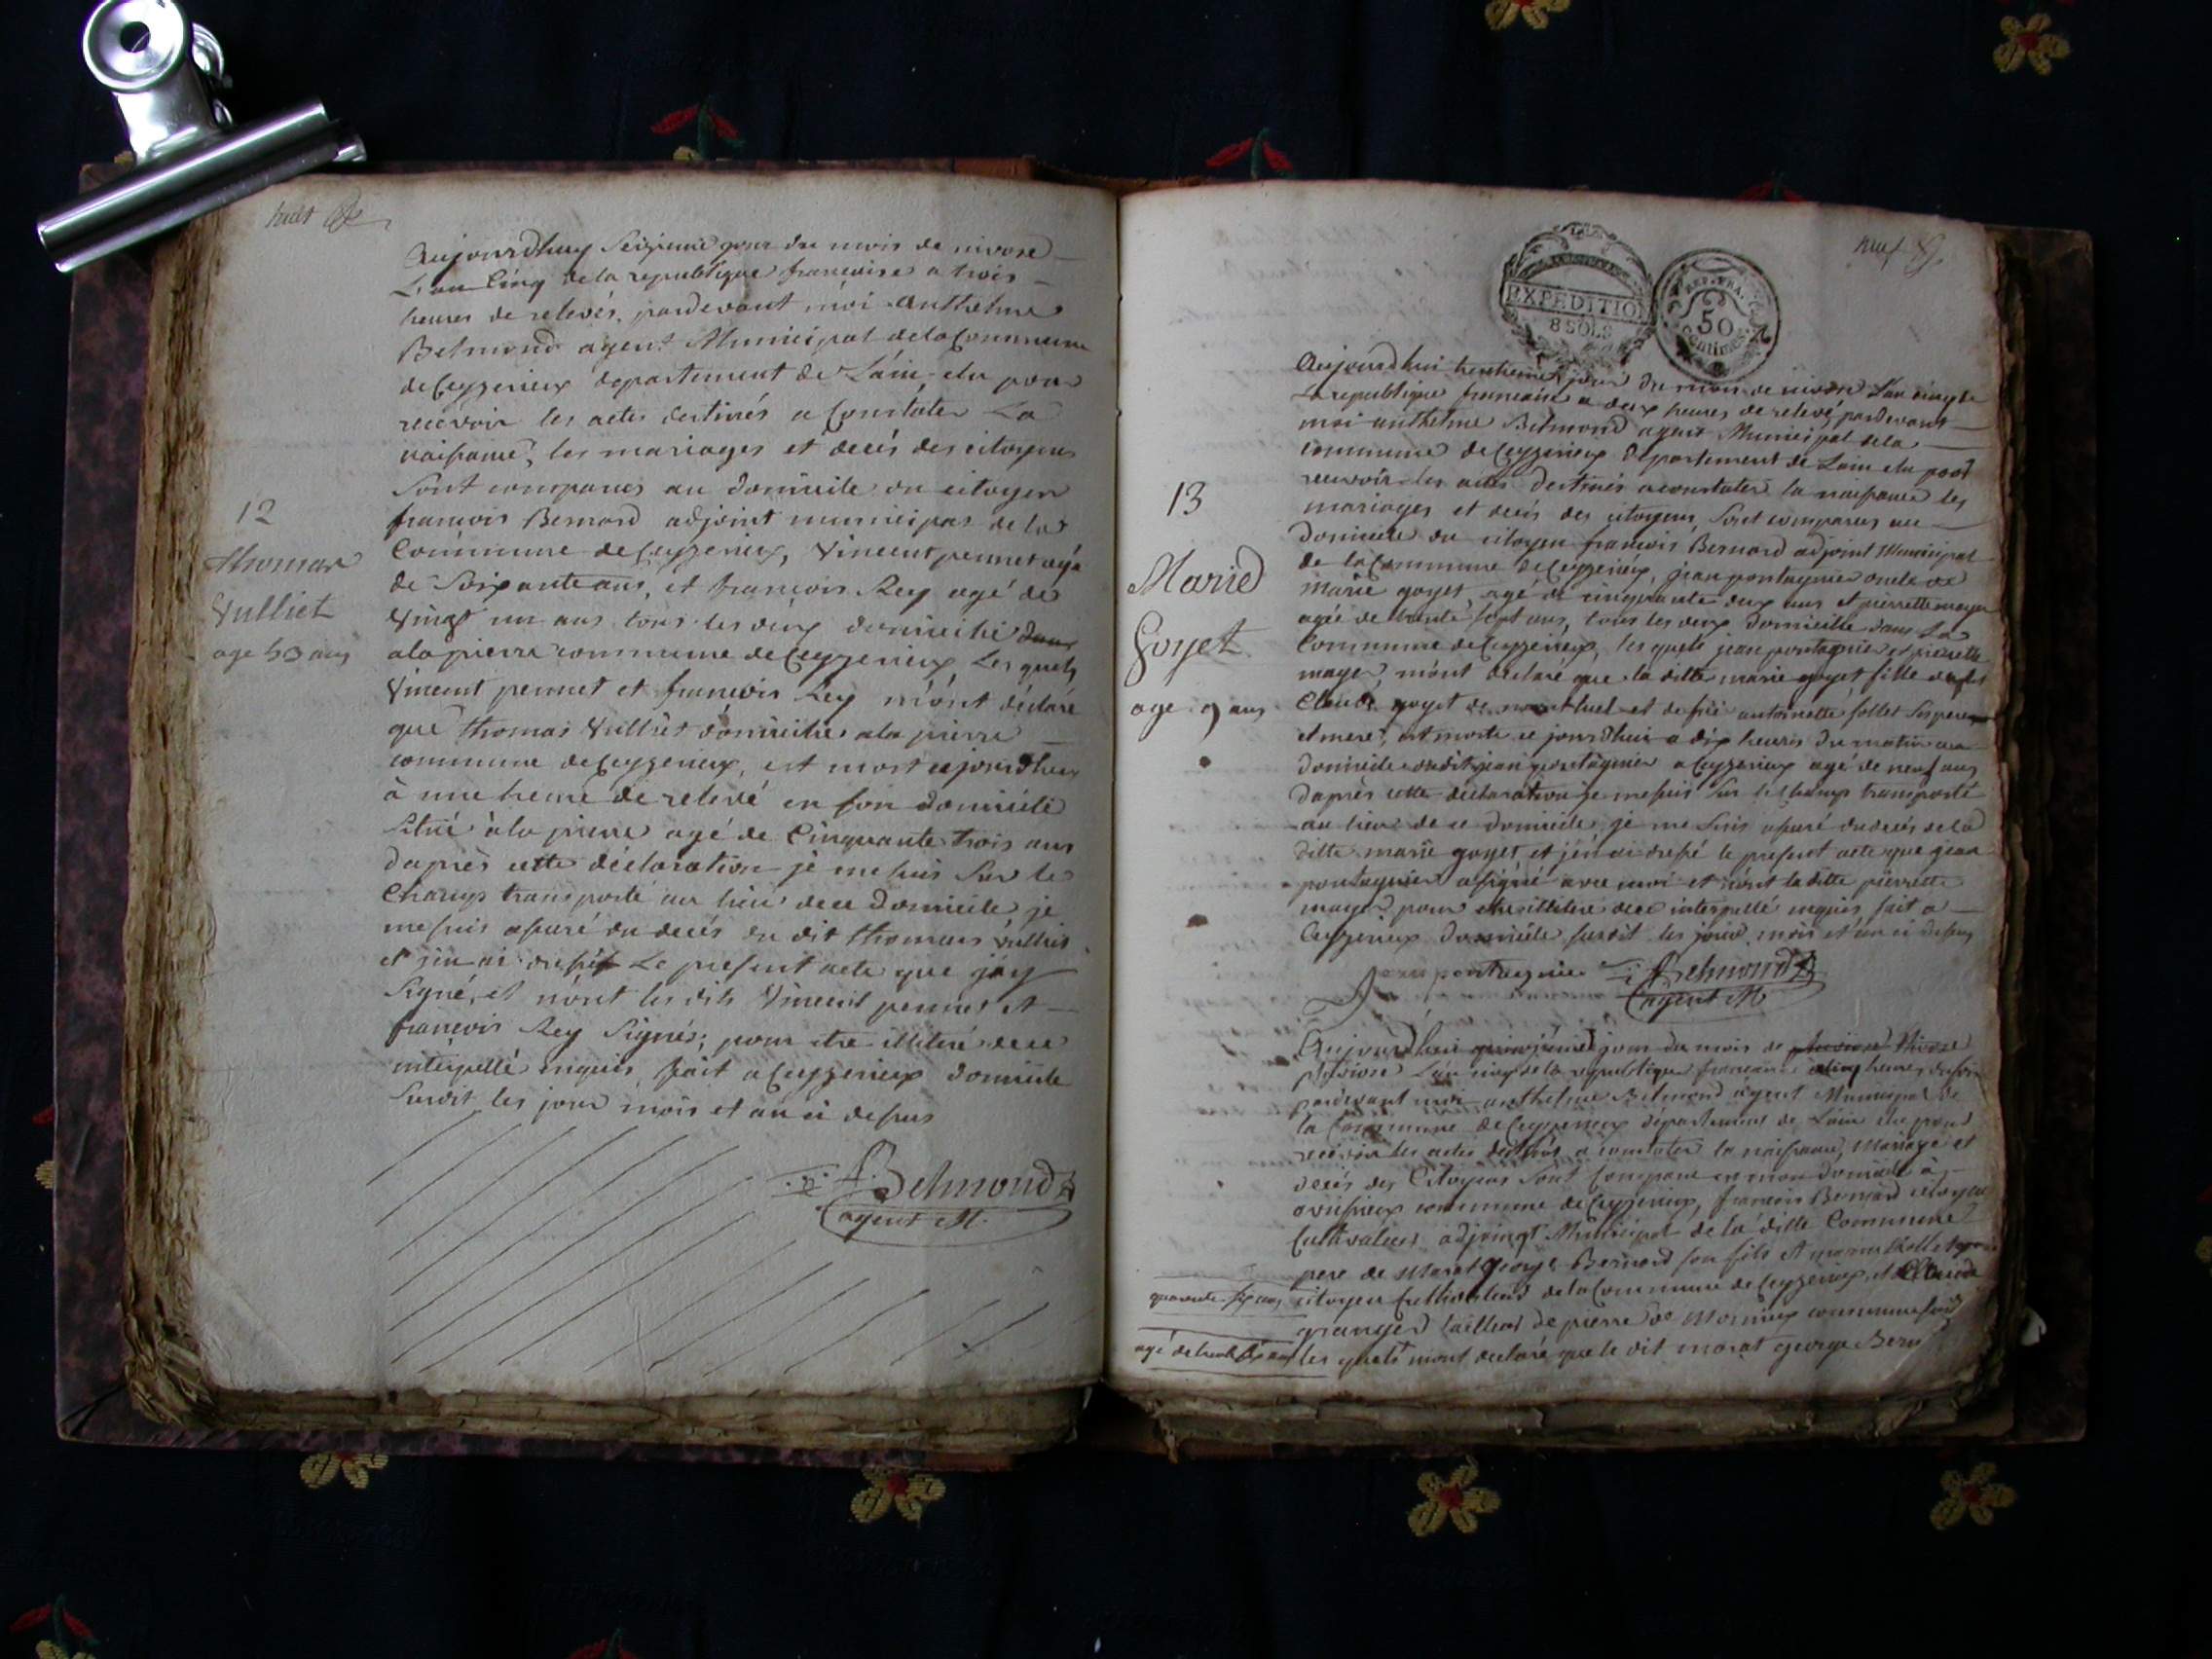 huit
Aujourdhuy Seizieme jour du mois de nivose
L'an Cinq de la republique francaise a trois
heures de relevés, pardevant moi anthelme
Belmond agent Municipal dela Commune
de Ceyzerieux departement de L'ain elu pour
recevoir les actes destinés a Constater La
naissance, les mariages et decés des citoyens
Sont comparues au domicile du citoyen
francois Bernard adjoint municipal de la
Commune de Ceyzerieux, Vincent pennet agé
de Soixante ans, et francois Rey agé de
Vingt un ans tous les deux domicilié dans
ala pierre commune de Ceyzerieux Les quels
Vincent pennet et francois Rey m'ont déclaré
que thomas Vulliet domicilié ala pierre
commune de Ceyzerieux, est mort cejourdhuy
à une heure de relevé en son domicile
situé àla pierre agé de Cinquante trois ans
daprès cette déclaration je me suis Sur le
Champs transporté au lieu dece domicile, je
me suis assuré du decés du dit thomas Vulliet
et j'en ai dressé Le present acte que j'ay
Signé, et n'ont les dits Vincent pennet et
francois Rey Signés; pour etre illiteré dece
interpellé enquis, fait a Ceyzerieux domicile
Susdit les jour mois et an ci dessus
A. Belmond
agent M.
12
thomas
Vulliet
age 53 ans
neuf
EXPEDITION
8 SOLS
REP. FRA.
50
Centimes
Aujourdhui trentieme jour du mois de nivose L'an cinq de
La republique francaise a deux heures de relevé, pardevant
moi anthelme Belmond agent Municipal dela
commune de Ceyzerieux departement de Lain elu pour
recevoir les actes destinés aconstater la naissance les
mariages et decés des citoyens, Sont comparus au
domicile du citoyen francois Bernard adjoint Municipal
de la Commune de Ceyzerieux, jean pontagnier oncle de
marie goyet, agé de cinquante deux ans et pierrette mayer
agée de trente sept ans, tous les deux domicilié dans La
Commune de Ceyzerieux, les quels jean pontagnier et pierrette
mayer, m'ont declaré que la ditte marie goyet fille de feu
Claude goyet de montluel et de feüe antoinette follet Ses pere
et mere, est morte ce jourdhui a dix heures du matin au
domicile dudit jean pontagnier a Ceyzerieux agé de neuf ans
daprès cette déclaration je me suis Sur le champs transporté
au lieu de ce domicile, je me Suis assuré du decés dela
ditte marie goyet, et j'en ai dressé le present acte que jean
pontagnier a signé avec moi et n'ont la ditte pierrette
mayer pour etre illiteré dece interpellé enquis, fait a
Ceyzerieux domicile Susdit les jour, mois et an ci dessus
Jean pontagnier A. Belmond
agent M.
Aujourdhui quinzieme jour du mois de
Pluviose L'an cinq de la republique francaise a cinq heures du soir
pardevant moi anthelme Belmond agent Municipal de
la Commune de Ceyzerieux département de Lain elu pour
recevoir les actes destinés a constater la naissance, Mariage et
decés des Citoyens Sont Comparu en mon domicile à
commune de Ceyzerieux, francois Bernard citoyen
Cultivateur adjoingt Municipal de la ditte Commune
pere de Marat George Bernard son fils et
citoyen Cultivateur de la Commune de Ceyzerieux, et Claude
granger tailleur de pierre de commune
les quels m'ont declaré que le dit marat george Bern
13
Marie
Goyet
age 9 ans
quarante six ans
agé de trente six ans